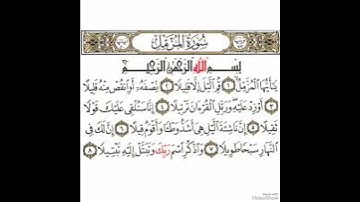 سُورَةُ الْمُزَّمِّلِ
بِسْمِ اللَّهِ الرَّحْمَٰنِ الرَّحِيمِ
يَا أَيُّهَا الْمُزَّمِّلُ ١ قُمِ اللَّيْلَ إِلَّا قَلِيلًا ٢ نِصْفَهُ أَوِ انْقُصْ مِنْهُ قَلِيلًا
٣ أَوْ زِدْ عَلَيْهِ وَرَتِّلِ الْقُرْآنَ تَرْتِيلًا ٤ إِنَّا سَنُلْقِي عَلَيْكَ قَوْلًا
ثَقِيلًا ٥ إِنَّ نَاشِئَةَ اللَّيْلِ هِيَ أَشَدُّ وَطْئًا وَأَقْوَمُ قِيلًا ٦ إِنَّ لَكَ فِي
النَّهَارِ سَبْحًا طَوِيلًا ٧ وَاذْكُرِ اسْمَ رَبِّكَ وَتَبَتَّلْ إِلَيْهِ تَبْتِيلًا ٨
VideoShow